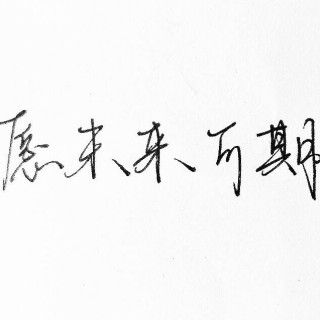 愿未来可期